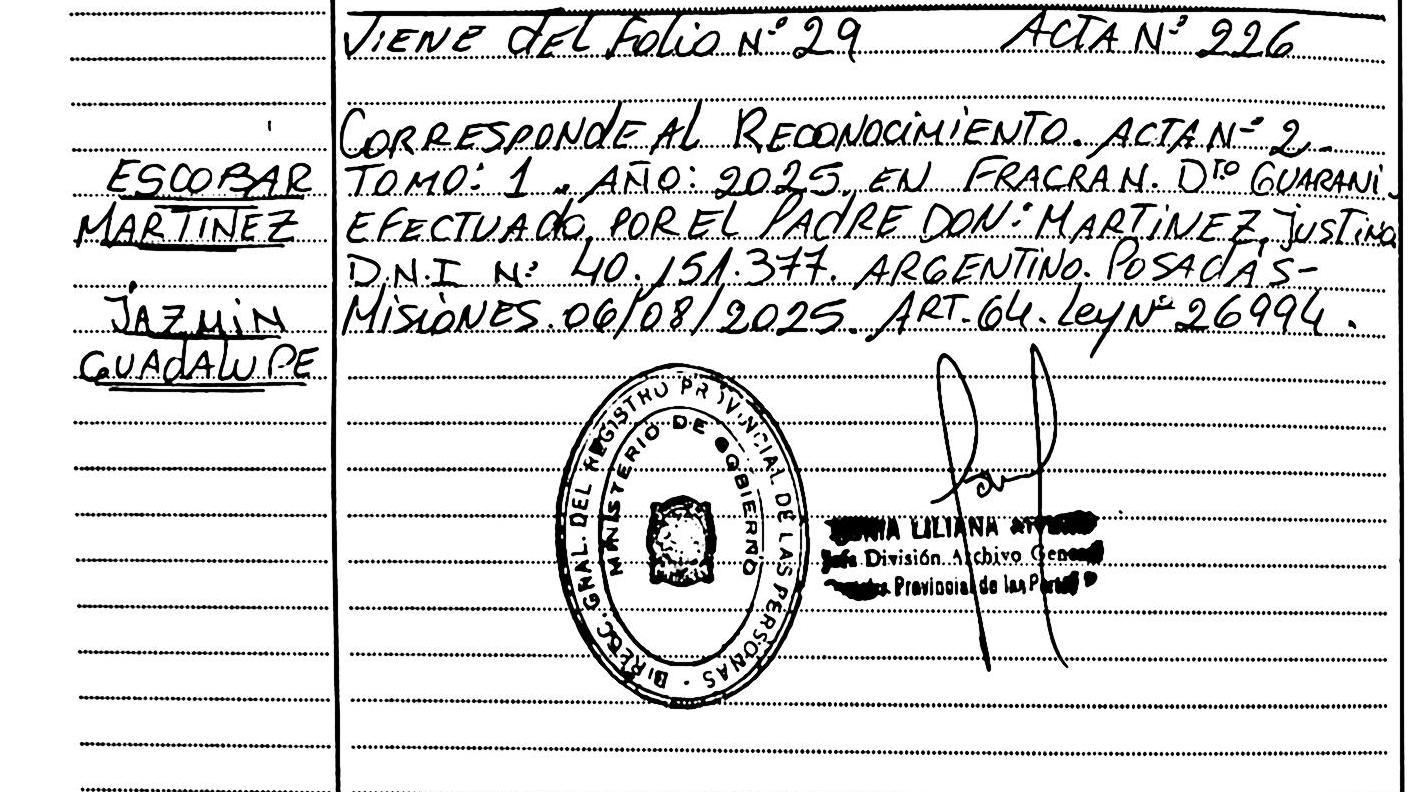 VIENE del Folio Nº 29 ACTA Nº 226
CORRESPONDE AL RECONOCIMIENTO. ACTA Nº 2.
TOMO: 1. AÑO: 2025. EN FRACRAN. Dto GUARANI.
EFECTUADO POR EL PADRE DON: MARTINEZ, JUSTINO
D.N.I Nº 40.151.377. ARGENTINO. POSADAS-
MISIONES. 06/08/2025. ART. 64. Ley Nº 26994.
ESCOBAR
MARTINEZ
JAZMIN
GUADALUPE
DIRECC. GRAL. DEL REGISTRO PROVINCIAL DE LAS PERSONAS
MINISTERIO DE GOBIERNO
LILIANA
División Archivo General
Provincial de las